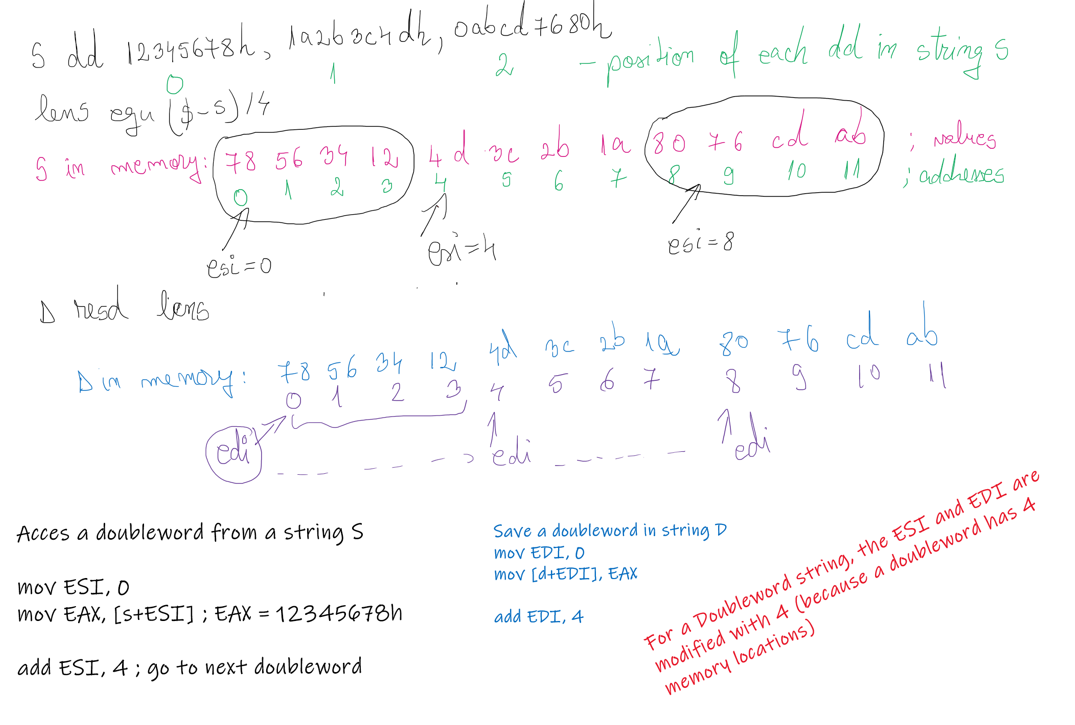 S dd 12345678h, 1a2b3c4dh, 0abcd7680h
0 1 2 - position of each dd in string S
lens equ ($-s)/4
S in memory: 78 56 34 12 4d 3c 2b 1a 80 76 cd ab ; values
0 1 2 3 4 5 6 7 8 9 10 11 ; addresses
esi=0 esi=4 esi=8
D resd lens
D in memory: 78 56 34 12 4d 3c 2b 1a 80 76 cd ab
0 1 2 3 4 5 6 7 8 9 10 11
edi edi edi
Acces a doubleword from a string S
mov ESI, 0
mov EAX, [s+ESI] ; EAX = 12345678h
add ESI, 4 ; go to next doubleword
Save a doubleword in string D
mov EDI, 0
mov [d+EDI], EAX
add EDI, 4
For a Doubleword string, the ESI and EDI are
modified with 4 (because a doubleword has 4
memory locations)